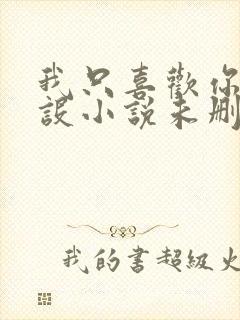 我只喜歡你
設小說未刪
我的書超級火